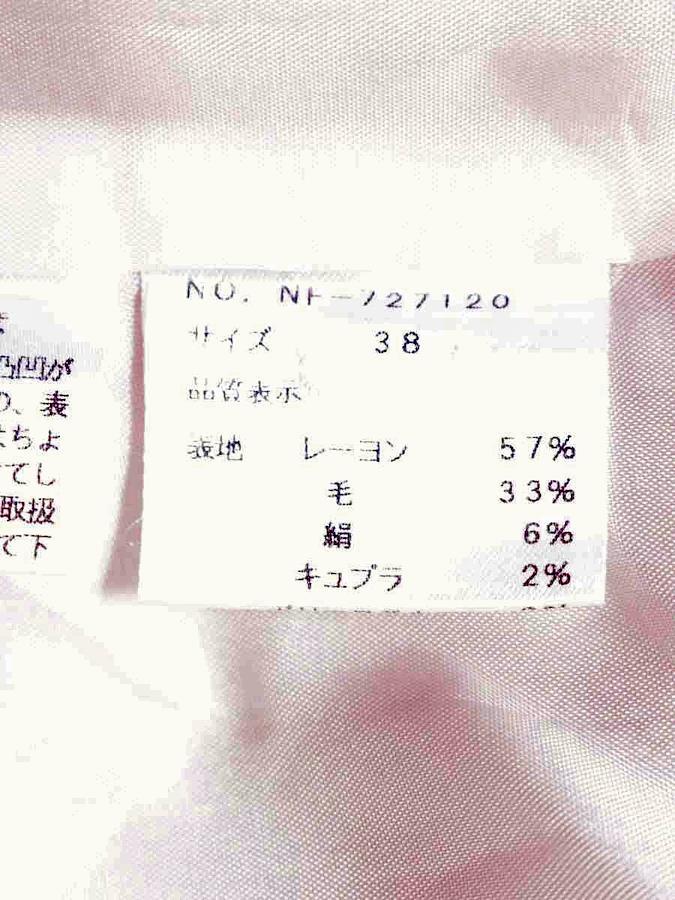 凸凹が
、表
ちよ
てし
取扱
て下
NO. NF-727120
サイズ 38
品質表示
表地 レーヨン 57%
毛 33%
絹 6%
キュプラ 2%